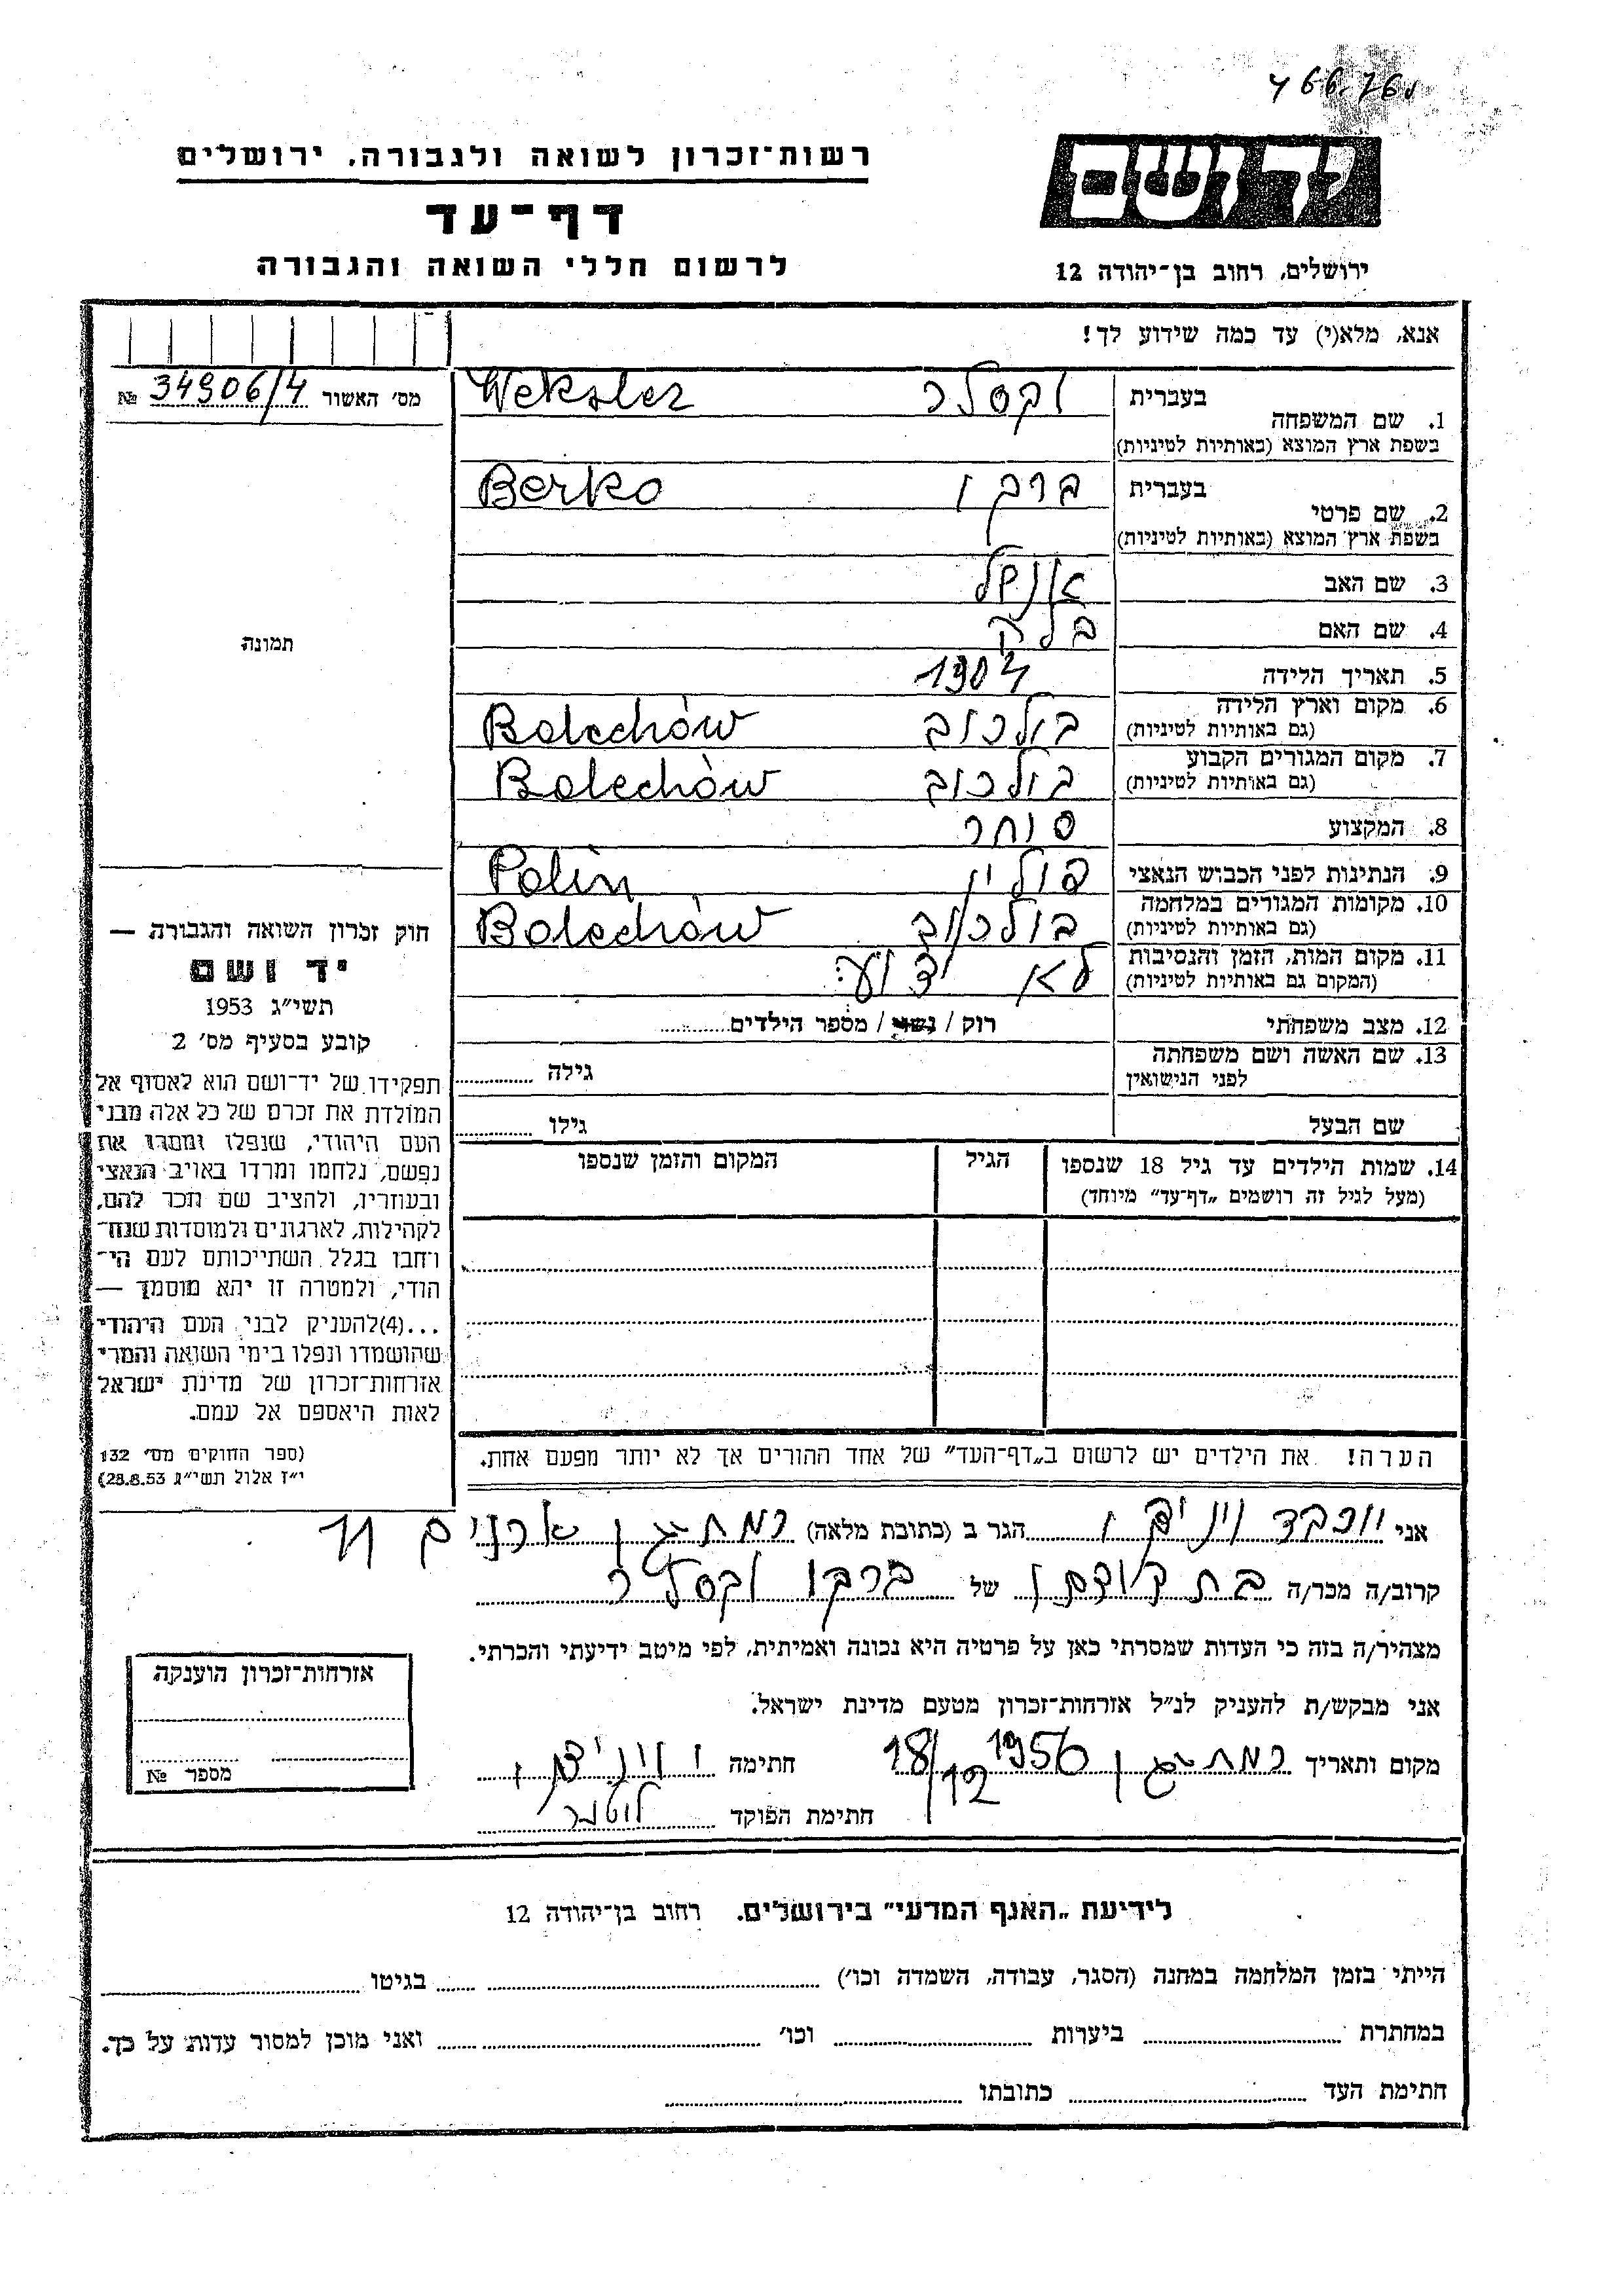 רשות־זכרון לשואה ולגבורה, ירושלים
דף־עד
לרשום חללי השואה והגבורה
יד ושם
ירושלים, רחוב בן־יהודה 12
אנא, מלא(י) עד כמה שידוע לך!
מס׳ האשור 34906/4 №
1. שם המשפחה
בעברית וקסלר
בשפת ארץ המוצא (באותיות לטיניות) Weksler
2. שם פרטי
בעברית ברקו
בשפת ארץ המוצא (באותיות לטיניות) Berko
3. שם האב
4. שם האם
5. תאריך הלידה 1904
6. מקום וארץ הלידה בולכוב Bolechów
(גם באותיות לטיניות)
7. מקום המגורים הקבוע בולכוב Bolechòw
(גם באותיות לטיניות)
8. המקצוע סוחר
9. הנתינות לפני הכבוש הנאצי פולין Polin
10. מקומות המגורים במלחמה בולכוב Bolechòw
(גם באותיות לטיניות)
11. מקום המות, הזמן והנסיבות לא ידוע
(המקום גם באותיות לטיניות)
12. מצב משפחתי רוק / נשוי / מספר הילדים
13. שם האשה ושם משפחתה גילה
לפני הנישואין
שם הבעל גילו
14. שמות הילדים עד גיל 18 שנספו הגיל המקום והזמן שנספו
(מעל לגיל זה רושמים „דף־עד״ מיוחד)
הערה! את הילדים יש לרשום ב„דף־העד״ של אחד ההורים אך לא יותר מפעם אחת.
תמונה
חוק זכרון השואה והגבורה —
יד ושם
תשי״ג 1953
קובע בסעיף מס׳ 2
תפקידו של יד־ושם הוא לאסוף אל
המולדת את זכרם של כל אלה מבני
העם היהודי, שנפלו ומסרו את
נפשם, נלחמו ומרדו באויב הנאצי
ובעוזריו, ולהציב שם וזכר להם,
לקהילות, לארגונים ולמוסדות שנח־
רחבו בגלל השתייכותם לעם הי־
הודי, ולמטרה זו יהא מוסמך —
...(4)להעניק לבני העם היהודי
שהושמדו ונפלו בימי השואה והמרי
אזרחות־זכרון של מדינת ישראל
לאות היאספם אל עמם.
(ספר החוקים מס׳ 132
י״ז אלול תשי״ג 28.8.53)
אני יוכבד הגר ב (כתובת מלאה) רמת גן ארנים 11
קרוב/ה מכר/ה בת דודתו של ברקו וקסלר
מצהיר/ה בזה כי העדות שמסרתי כאן על פרטיה היא נכונה ואמיתית, לפי מיטב ידיעתי והכרתי.
אני מבקש/ת להעניק לנ״ל אזרחות־זכרון מטעם מדינת ישראל.
מקום ותאריך רמת גן 18/12 1956 חתימה
חתימת הפוקד
אזרחות־זכרון הוענקה
מספר №
לידיעת „האגף המדעי״ בירושלים. רחוב בן־יהודה 12
הייתי בזמן המלחמה במחנה (הסגר, עבודה, השמדה וכו׳) בגיטו
במחתרת ביערות וכו׳ ואני מוכן למסור עדות על כך.
חתימת העד כתובתו